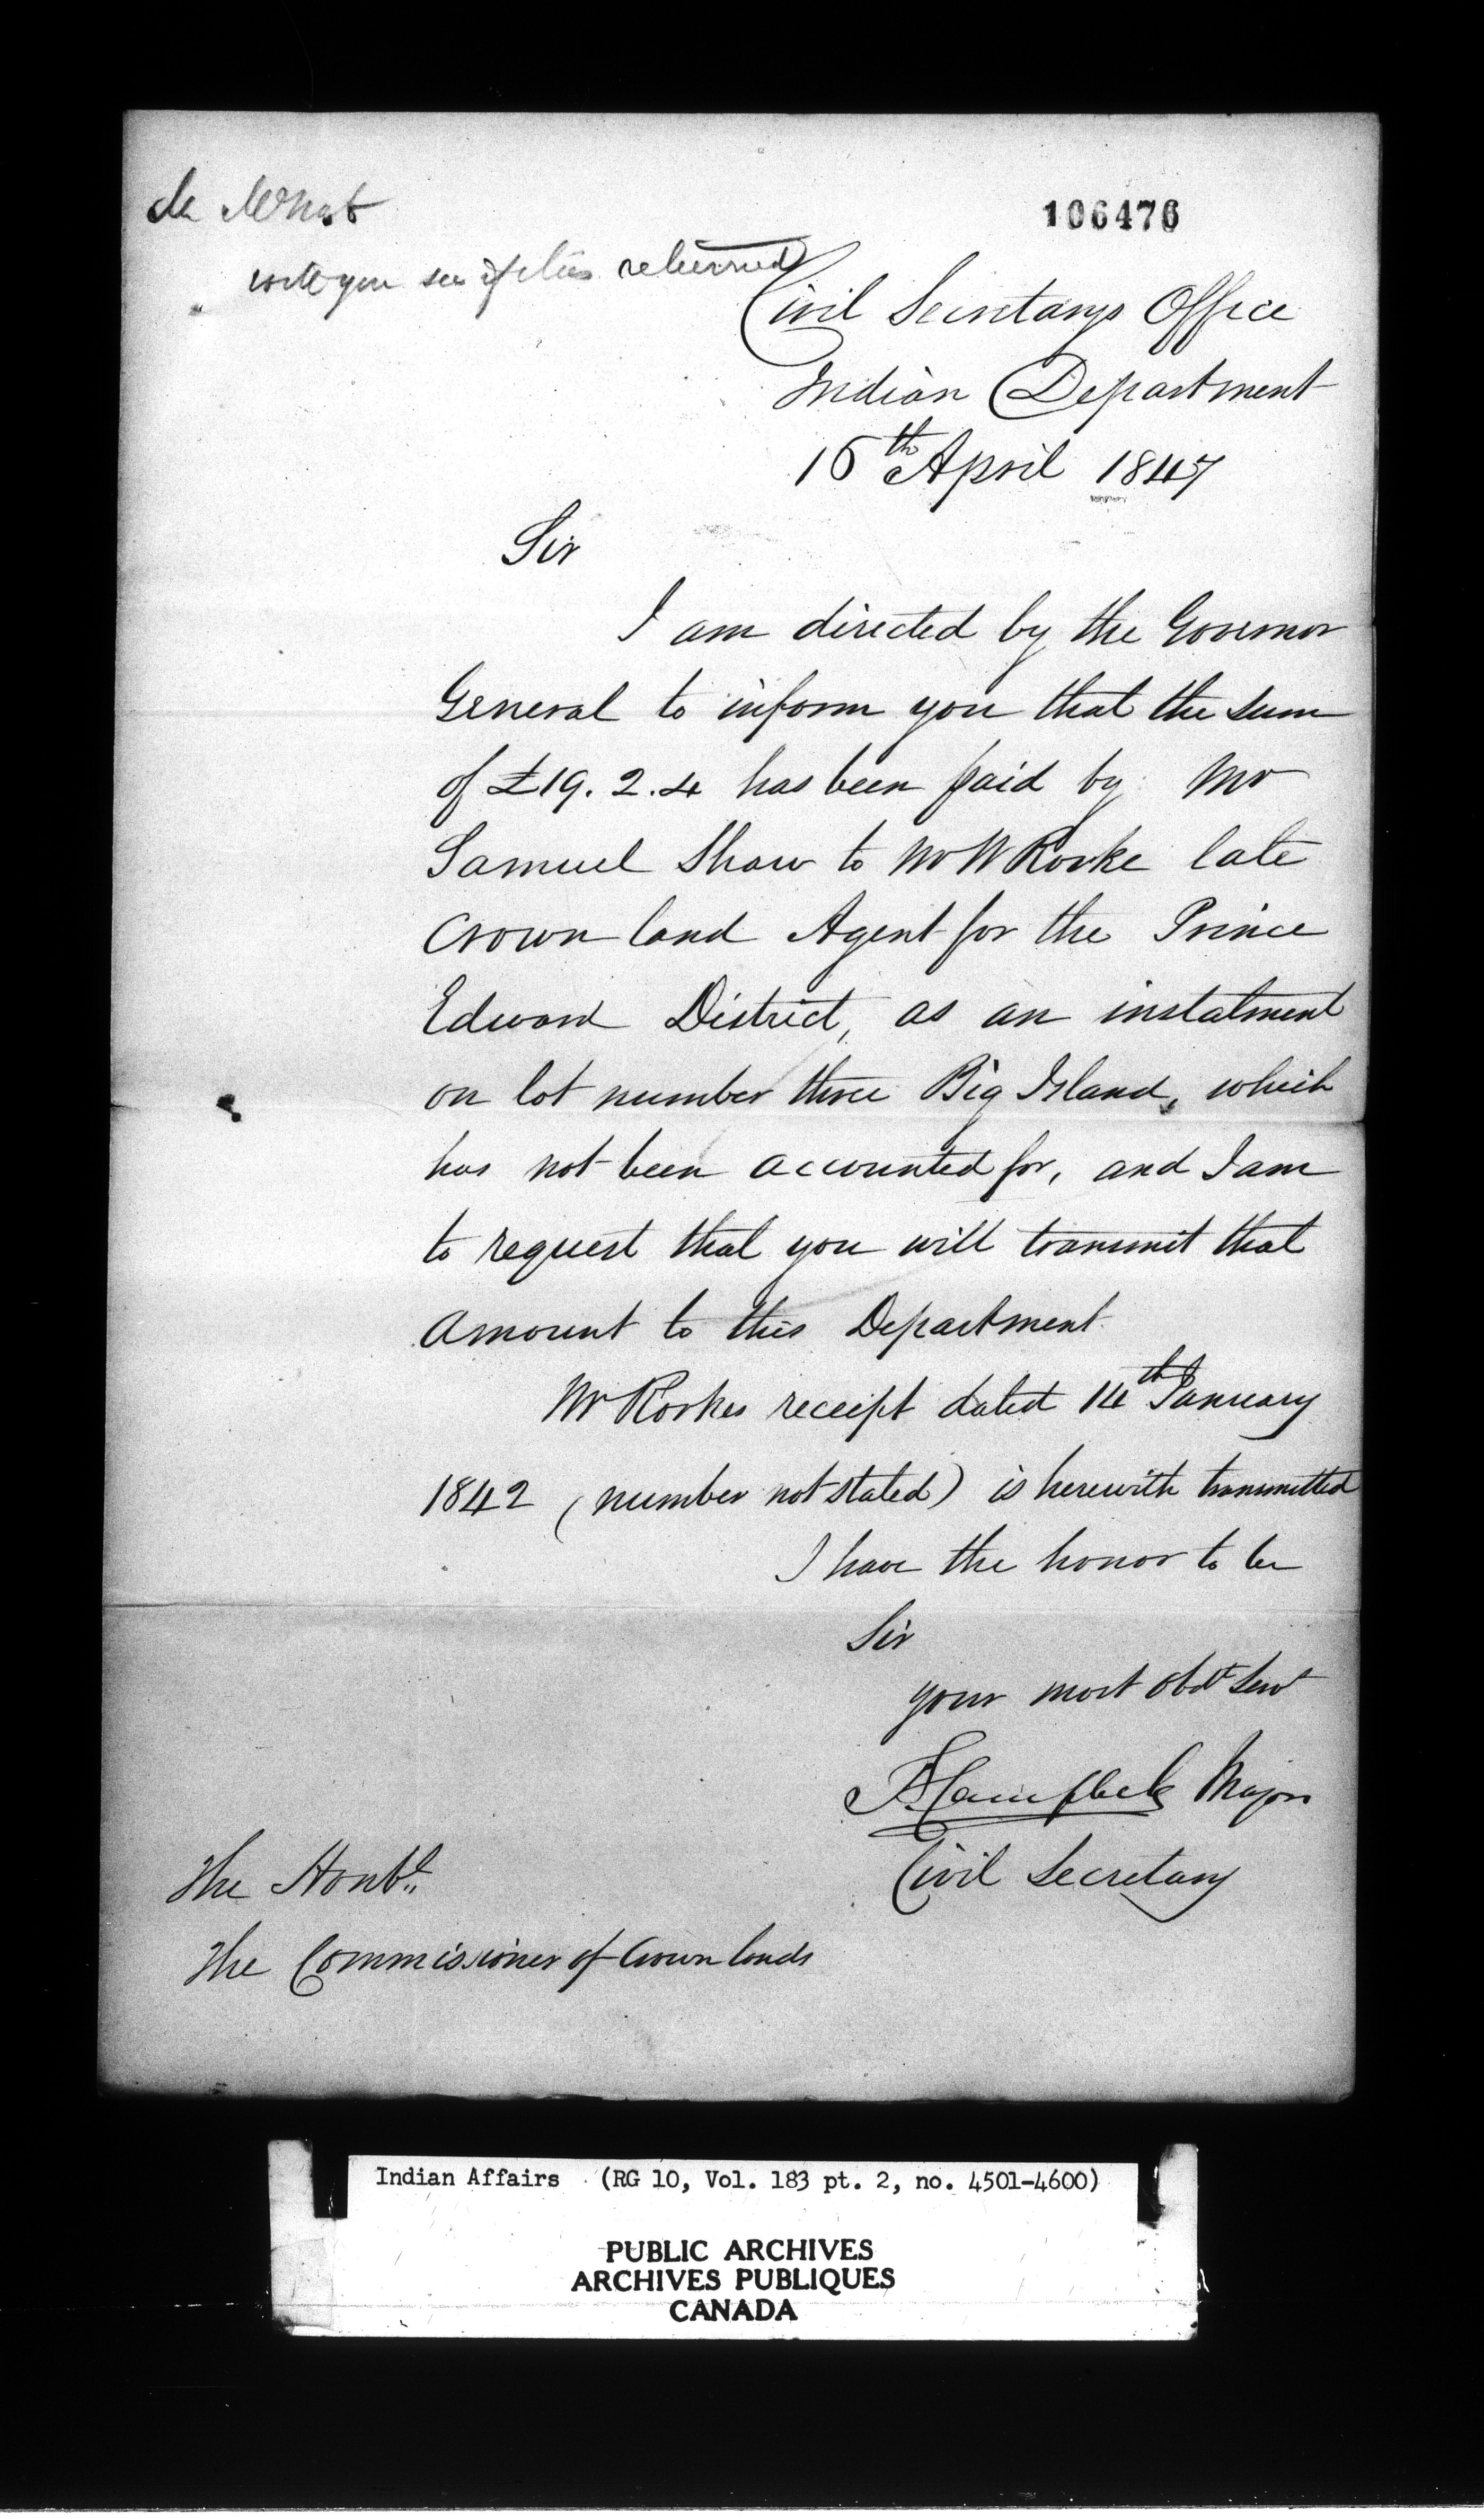 106476
will you see if this returned
Civil Secretarys Office
Indian Department
16th April 1847
Sir
I am directed by the Governor
General to inform you that the sum
of £19. 2. 4 has been paid by Mr
Samuel Shaw to Mr W Rorke late
Crown land Agent for the Prince
Edward District, as an instalment
on lot number three Big Island, which
has not been accounted for, and I am
to request that you will transmit that
amount to this Department
Mr Rorkes receipt dated 14th January
1842 (number not stated) is herewith transmitted
I have the honor to be
Sir
your most obdt Servt
Campbell Major
Civil Secretary
The Honble
The Commissioner of Crown lands
Indian Affairs (RG 10, Vol. 183 pt. 2, no. 4501-4600)
PUBLIC ARCHIVES
ARCHIVES PUBLIQUES
CANADA